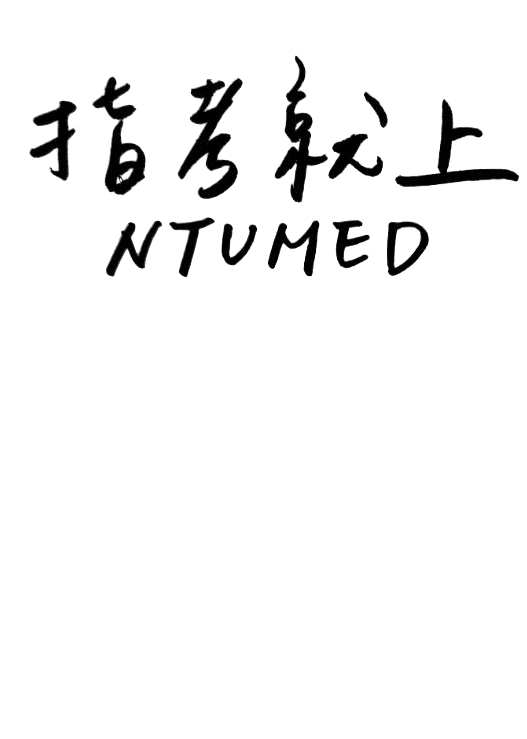 指考就上
NTUMED